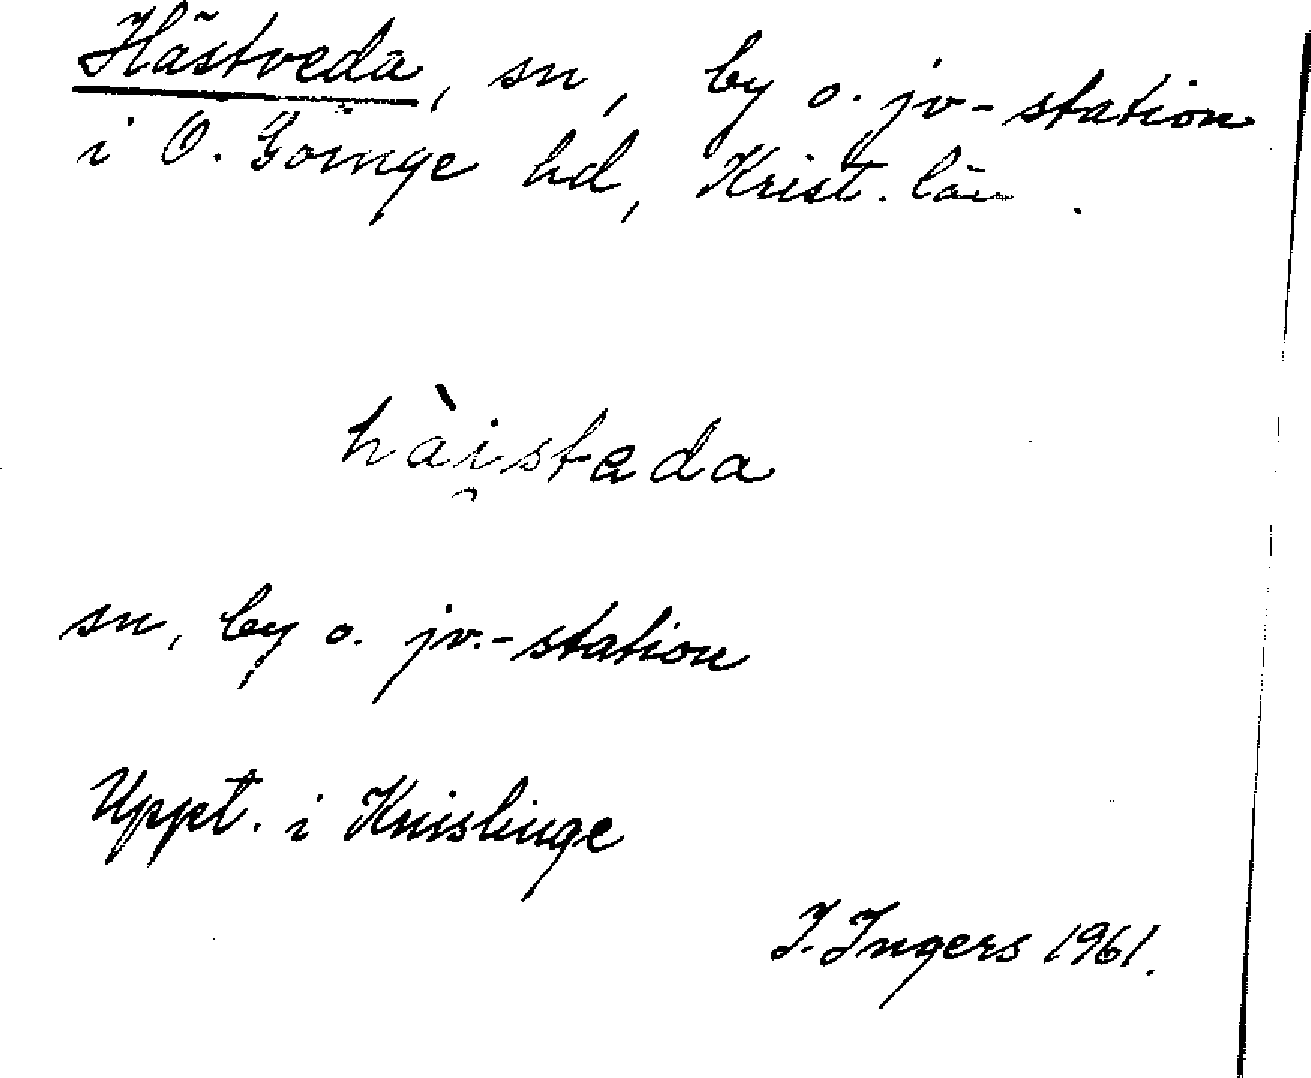 Hästveda, sn, by o. jv-station
i Ö. Göinge hd, Krist. län.
hài̯stada
sn, by o. jv.-station
Uppt. i Knislinge
I. Ingers 1961.